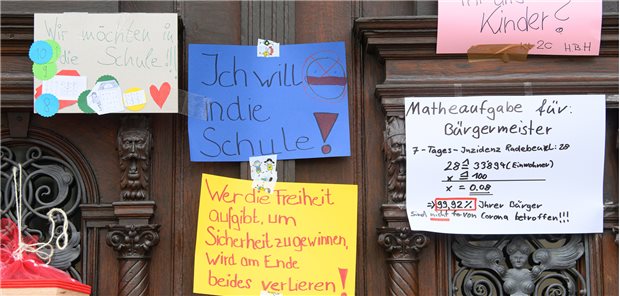 Wir möchten in
die Schule!!!
Ich will
in die
Schule!
Wer die Freiheit
aufgibt, um
Sicherheit zu gewinnen,
wird am Ende
beides verlieren!
Kinder?
2c B.H
Matheaufgabe für:
Bärgermeister
7-Tages-Inzidenz Radebeul: 28
28 ≙ 33894 (Einwohner)
x ≙ 100
x = 0,08
⇒ 99,92% Ihrer Bürger
sind nicht von Corona betroffen!!!